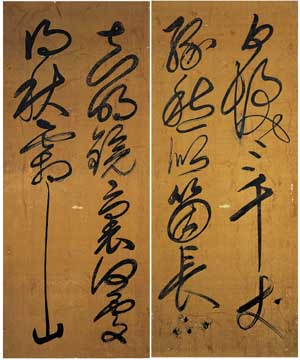 白髮三千丈
緣愁似箇長
不知明鏡裏何處
得秋霜